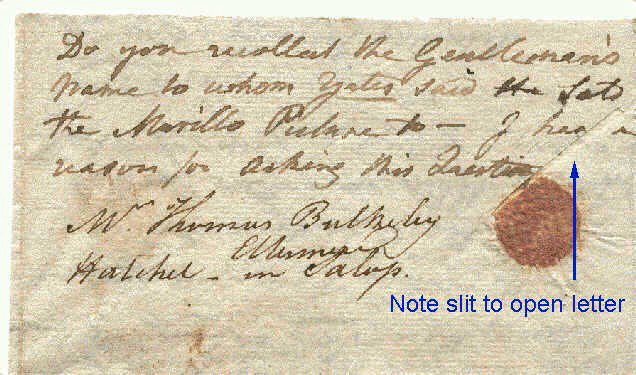 Do you recollect the Gentleman's
name to whom Yates said he Sold
the Murillo Picture to — I have a
reason for asking this Question
Mr. Thomas Bulkeley
Ellesmere
Hatchel - in Salop.
Note slit to open letter